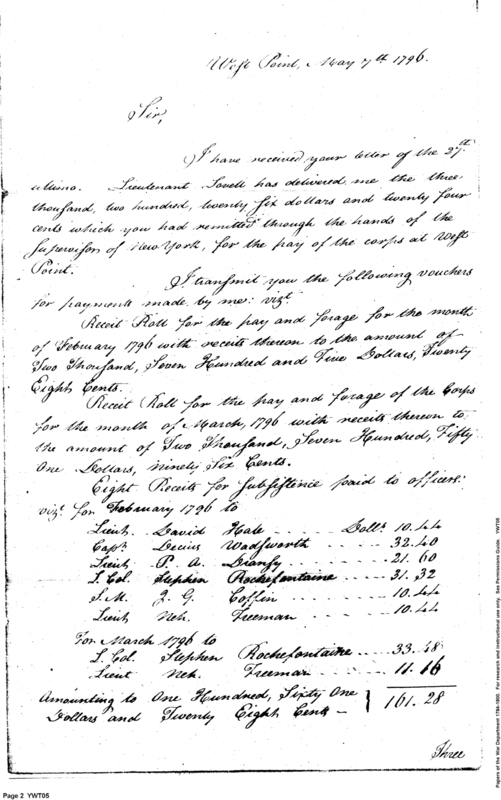 West Point, May 7th 1796.
Sir,
I have received your letter of the 27th
ultimo. Lieutenant Lovell has delivered me the three
thousand, two hundred, twenty six dollars and twenty four
cents which you had remitted through the hands of the
Supervisor of New York, for the pay of the corps at West
Point.
I transmit you the following vouchers
for payments made by me: vizt
Receit Roll for the pay and forage for the month
of February 1796 with receits thereon to the amount of
Two Thousand, Seven Hundred and Five Dollars, Twenty
Eight Cents.
Receit Roll for the pay and forage of the Corps
for the month of March, 1796 with receits thereon to
the amount of Two Thousand, Seven Hundred, Fifty
One Dollars, ninety Six Cents.
Eight Receits for Subsistence paid to officers:
vizt for February 1796 to
Lieut. David Hale Dolls 10.44
Capn Decius Wadsworth 32.40
Lieut P. A. Dransy 21.60
L. Col. Stephen Rochefontaine 31.32
S.M. J. G. Coffin 10.44
Lieut Neh. Freeman 10.44
For March 1796 to
L. Col. Stephen Rochefontaine 33.48
Lieut Neh. Freeman 11.16
Amounting to One Hundred, Sixty One
Dollars and Twenty Eight Cents – } 161.28
Three
Page 2 YWT05
Papers of the War Department 1784-1800. For research and instructional use only. See Permissions Guide. YWT05